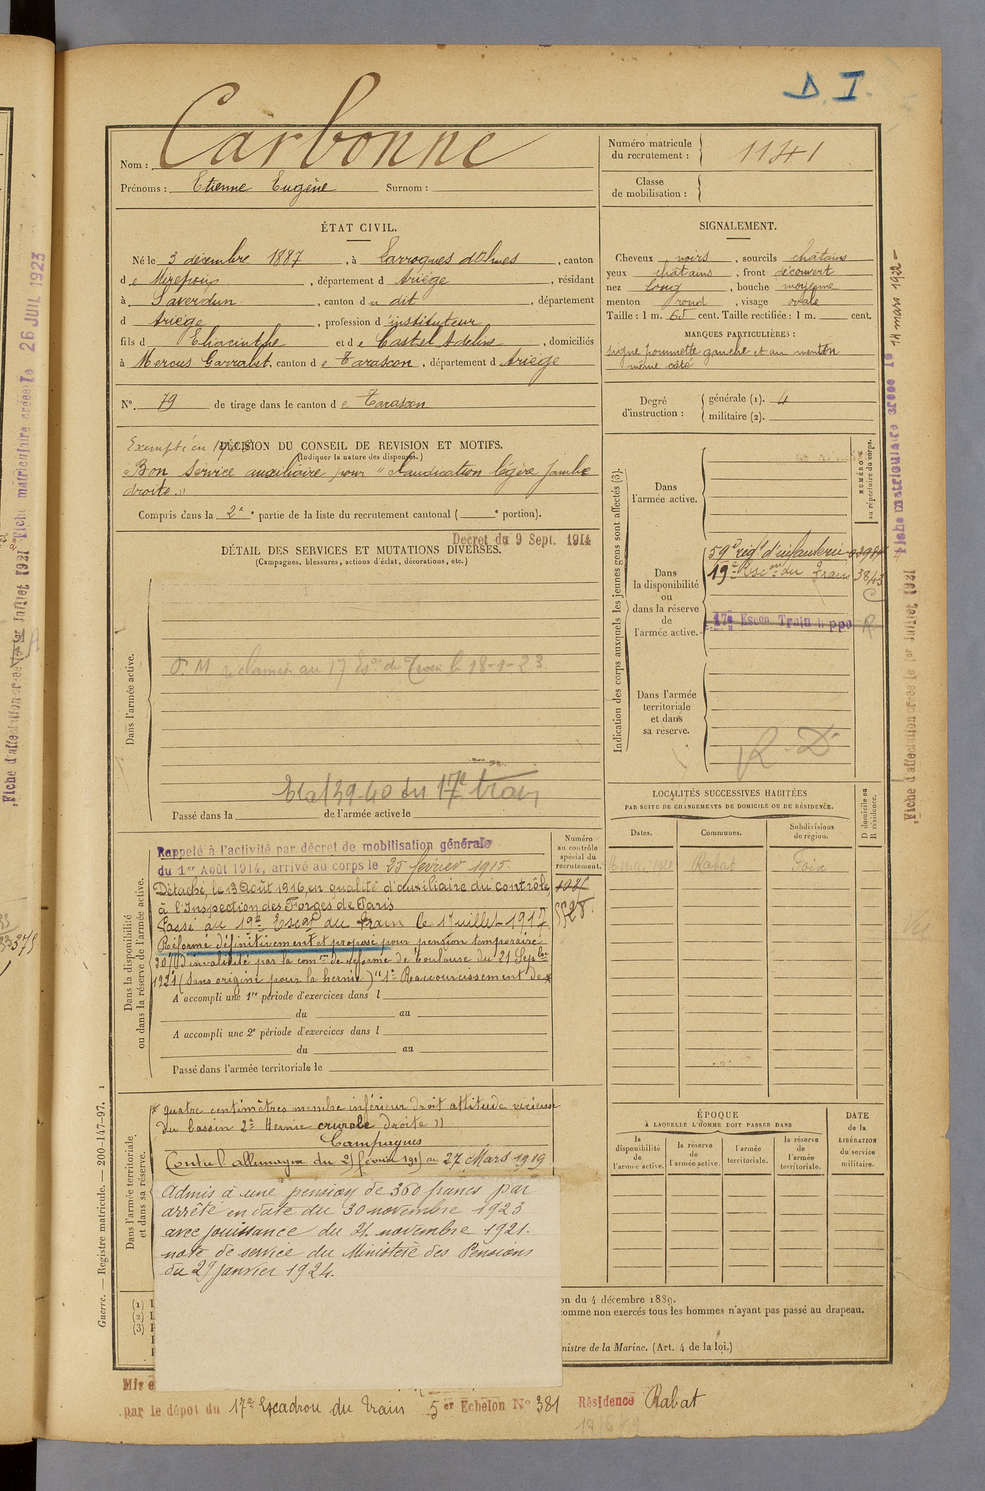 D. I.
Nom : Carbonne
Prénoms : Etienne Eugène Surnom :
Numéro matricule
du recrutement : 1141
Classe
de mobilisation :
ÉTAT CIVIL.
Né le 3 décembre 1887, à Larroques d'Olmes, canton
de Mirepoix, département d Ariège, résidant
à Saverdun, canton du dit, département
d Ariège, profession d'instituteur
fils d Thiacinthe et de Castel Adeline, domiciliés
à Mercus Garrabet, canton de Tarascon, département d Ariège
N° 79 de tirage dans le canton de Tarascon
SIGNALEMENT.
Cheveux noirs, sourcils chatains
yeux chatains, front découvert
nez long, bouche moyenne
menton rond, visage ovale
Taille : 1 m. 60 cent. Taille rectifiée : 1 m. cent.
MARQUES PARTICULIÈRES :
signe pommette gauche et au menton
même côté
Degré
d'instruction :
générale (1). 4
militaire (2).
Exempté en
DÉCISION DU CONSEIL DE REVISION ET MOTIFS.
(Indiquer la nature des dispenses.)
"Bon Service auxiliaire pour "claudication légère jambe
droite."
Compris dans la 2e partie de la liste du recrutement cantonal ( e portion).
Décret du 9 Sept. 1914
DÉTAIL DES SERVICES ET MUTATIONS DIVERSES.
(Campagnes, blessures, actions d'éclat, décorations, etc.)
Dans l'armée active.
au 17 de Train le 18-1-23
39-40 du 17e train
Passé dans la de l'armée active le
Indication des corps auxquels les jeunes gens sont affectés (3).
NUMÉROS
au répertoire du corps.
Dans
l'armée active.
Dans
la disponibilité
ou
dans la réserve
de
l'armée active.
59e régt d'infanterie
19e Escon du Train 3843
17e Escon Train hippo R
Dans l'armée
territoriale
et dans
sa réserve.
R-D
LOCALITÉS SUCCESSIVES HABITÉES
PAR SUITE DE CHANGEMENTS DE DOMICILE OU DE RÉSIDENCE.
D domicile ou
R résidence.
Dates. Communes. Subdivisions
de région.
Rabat Foix
Dans la disponibilité
ou dans la réserve de l'armée active.
Numéro
au contrôle
spécial du
recrutement.
5528
Rappelé à l'activité par décret de mobilisation générale
du 1er Août 1914, arrivé au corps le 25 février 1915.
Détaché, le 13 Août 1916, en qualité d'auxiliaire du contrôle,
à l'Inspection des Forges de Paris
Passé au 19e Escon du Train le 1er Juillet 1917
Réformé définitivement et proposé pour pension temporaire
d'invalidité par la comon de réforme de Toulouse du 21 Sepbre
1921 (Sans origine pour la hernie) "1° Raccourcissement de
A accompli une 1re période d'exercices dans l
du au
A accompli une 2e période d'exercices dans l
du au
Passé dans l'armée territoriale le
Dans l'armée territoriale
et dans sa réserve.
quatre centimètres membre inférieur droit attitude vicieuse
du bassin 2° Hernie crurale droite"
Campagnes
Contre l'allemagne du 25 février 1915 au 27 Mars 1919
Admis à une pension de 360 francs par
arrêté en date du 30 novembre 1923
avec jouissance du 21 novembre 1921.
note de service du Ministère des Pensions
du 29 janvier 1924.
ÉPOQUE
À LAQUELLE L'HOMME DOIT PASSER DANS
la
disponibilité
de
l'armée active.
la réserve
de
l'armée active.
l'armée
territoriale.
la réserve
de
l'armée
territoriale.
DATE
de la
LIBÉRATION
du service
militaire.
(1)
(2)
(3)
on du 4 décembre 1889.
comme non exercés tous les hommes n'ayant pas passé au drapeau.
nistre de la Marine. (Art. 4 de la loi.)
par le dépôt du 17e Escadron du Train 5er Échelon N° 381 Résidence Rabat
Guerre. — Registre matricule. — 200-147-97.
Fiche matriculaire créée le 14 mars 1922
Fiche d'affectation créée le 1er Juillet 1921
Fiche matriculaire créée le 26 JUIL 1923
Fiche d'affectation créée le 1er Juillet 1921